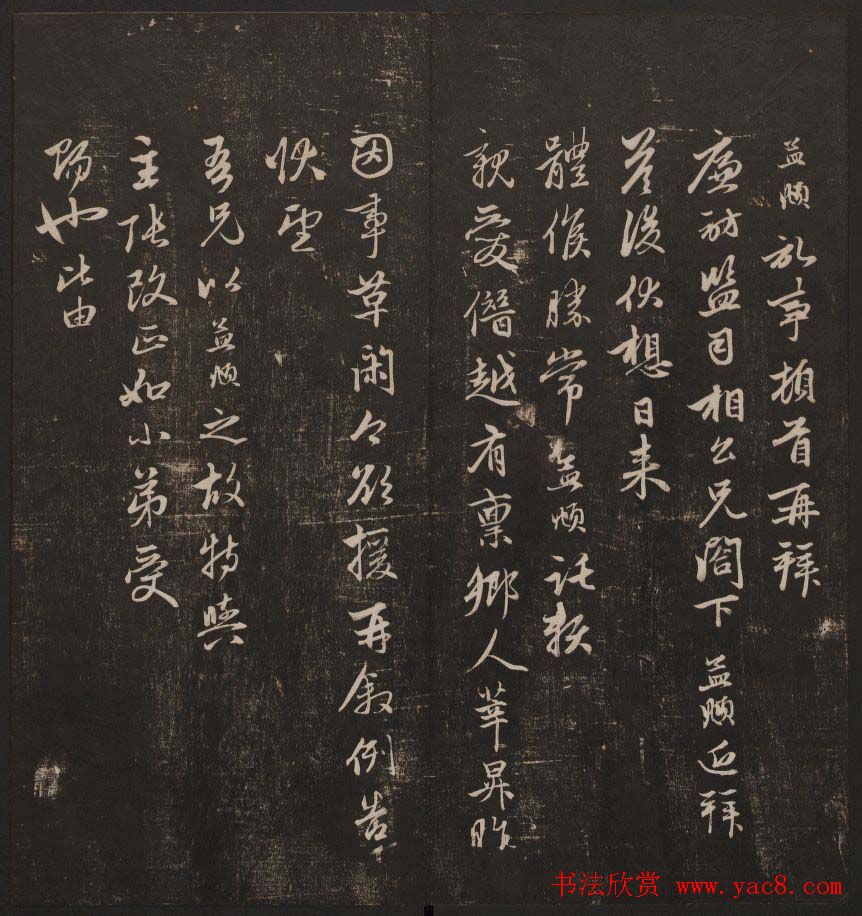 孟頫記事頓首再拜
廉訪監司相公兄閤下孟頫近拜
答後伏想日來
體候勝常孟頫託賴
親愛僭越有稟鄉人莘昇昨
因事革閑今欲援再敘例告
伏望
吾兄以孟頫之故特與
主張改正如小弟受
賜也比由
书法欣赏 www.yac8.com